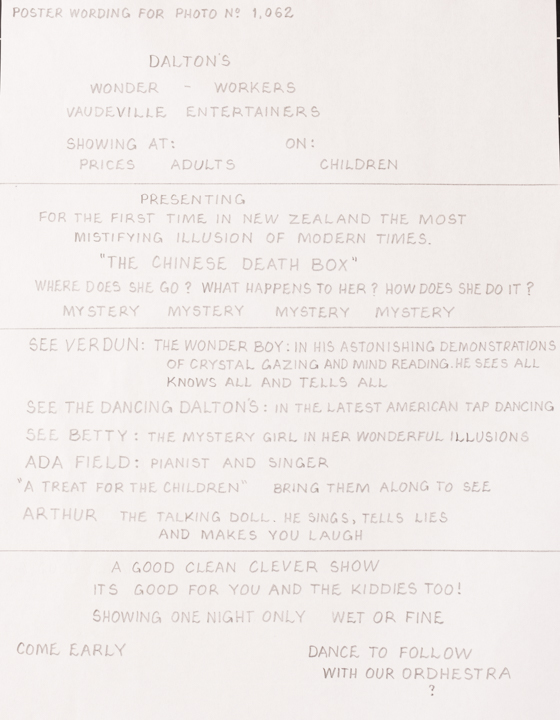 POSTER WORDING FOR PHOTO Nº 1,062
DALTON'S
WONDER - WORKERS
VAUDEVILLE ENTERTAINERS
SHOWING AT: ON:
PRICES ADULTS CHILDREN
PRESENTING
FOR THE FIRST TIME IN NEW ZEALAND THE MOST
MISTIFYING ILLUSION OF MODERN TIMES.
"THE CHINESE DEATH BOX"
WHERE DOES SHE GO? WHAT HAPPENS TO HER? HOW DOES SHE DO IT?
MYSTERY MYSTERY MYSTERY MYSTERY
SEE VERDUN: THE WONDER BOY: IN HIS ASTONISHING DEMONSTRATIONS
OF CRYSTAL GAZING AND MIND READING. HE SEES ALL
KNOWS ALL AND TELLS ALL
SEE THE DANCING DALTON'S: IN THE LATEST AMERICAN TAP DANCING
SEE BETTY: THE MYSTERY GIRL IN HER WONDERFUL ILLUSIONS
ADA FIELD: PIANIST AND SINGER
"A TREAT FOR THE CHILDREN" BRING THEM ALONG TO SEE
ARTHUR THE TALKING DOLL. HE SINGS, TELLS LIES
AND MAKES YOU LAUGH
A GOOD CLEAN CLEVER SHOW
ITS GOOD FOR YOU AND THE KIDDIES TOO!
SHOWING ONE NIGHT ONLY WET OR FINE
COME EARLY DANCE TO FOLLOW
WITH OUR ORDHESTRA
?